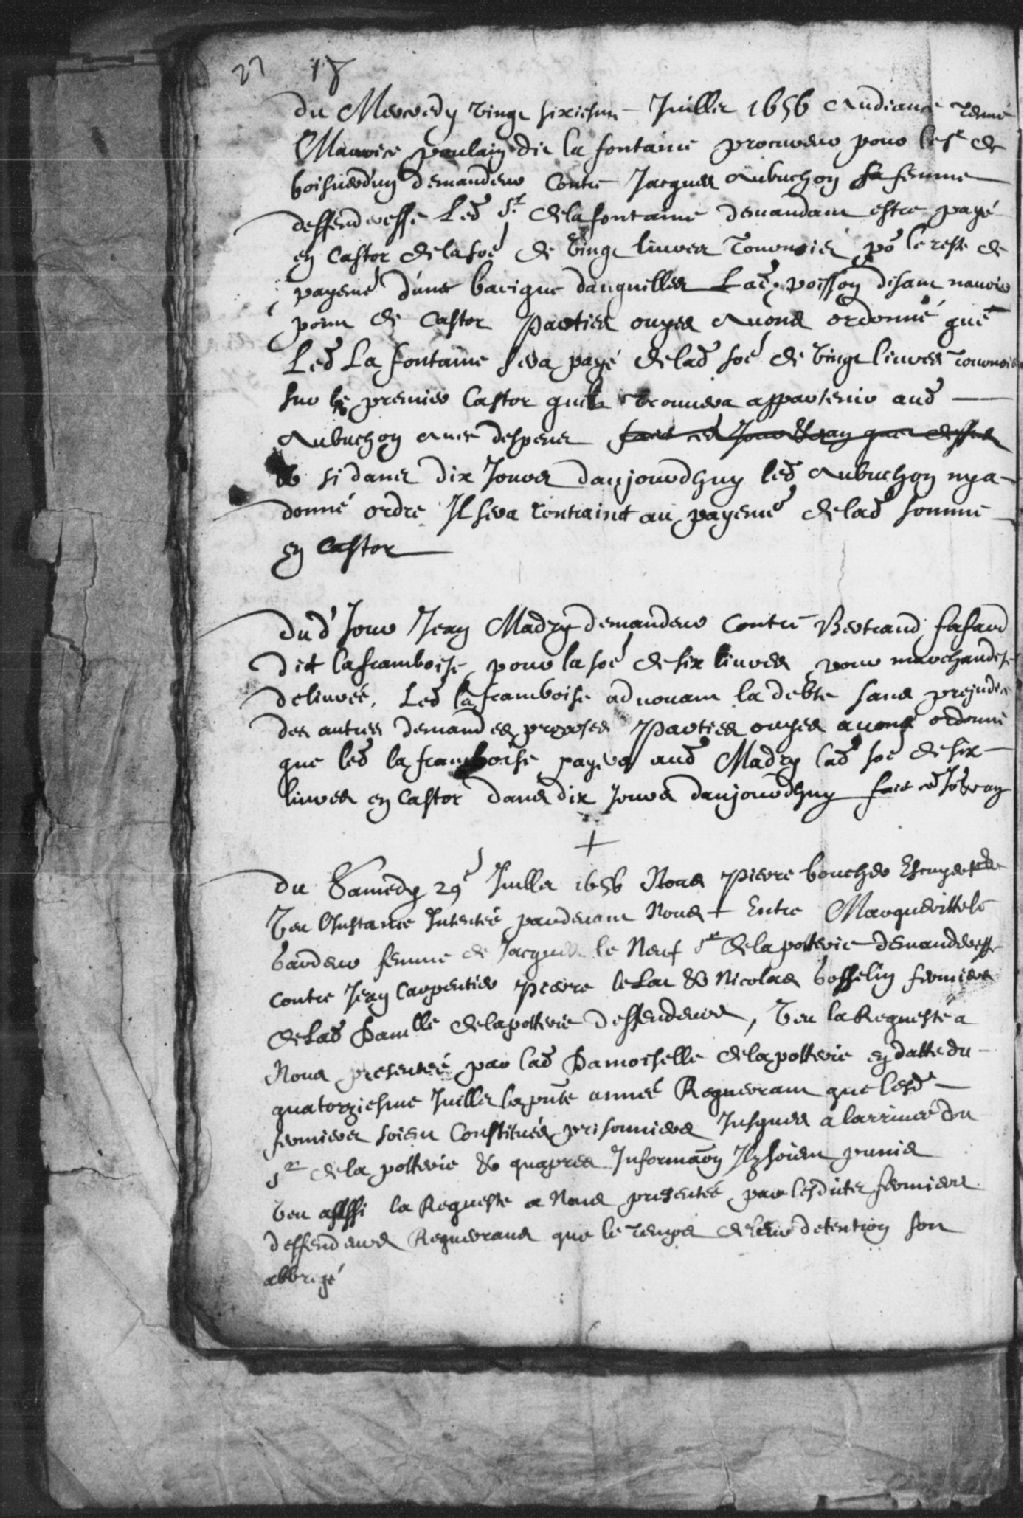 27 18
du Mercredy vingt sixiesme Juillet 1656 Audiance tenue
Maurice poulain dit la fontaine procureur pour le sr de
boisuerdun demandeur contre Jacques Aubuchon sa femme
deffenderesse Led. sr. de la fontaine demandant estre payé
en Castor de la soē de vingt liures tournois po le reste de
payemē d'une barique danguilles Lad. poisson disant nauoir
point de Castor Parties ouyes Auons ordonné que
Led La fontaine sera payé de lad soē de vingt liures tournois
sur le premier Castor quil trouuera appartenir aud
Aubuchon auec despens
& si dans dix Jours daujourdhuy led Aubuchon nya
donné ordre Il sera contraint au payemē de lad somme
en Castor
Dud Jour Jean Madry demandeur contre Bertrand fafard
dit laframboise pour la soē de six liures pour marchandise
deliurée, Led la framboise aduouant la debte sans prejudice
des autres demandes proposes Parties ouyes auons ordonné
que led la framboise payera aud Madry lad soē de six
liures en Castor dans dix Jours daujourdhuy fait ce Jo. & an
+
du Samedy 29e Juillet 1656 Nous Pierre boucher Escuyer
Veu Linstance Intentée pardeuant Nous Entre Margueritte le
gardeur femme de Jacques le Neuf sr de la potterie demanderesse
contre Jean Carpentier Pierre le Lat & Nicolas gosselin fermiers
de Lad Damlle de la potterie deffendeurs, Veu la Requeste a
Nous presentée par lad Damoiselle de la potterie en datte du
quatorziesme Juillet la pnte année Requerant que lesd
fermiers soient Constitués prisonniers Jusques a larriuée du
sr de la potterie & quapres Informaōn Ilz soient punis
Veu aussi la Requeste a Nous presentée par lesdits fermiers
deffendeurs Requerans que le temps de leur detention soit
abbregé